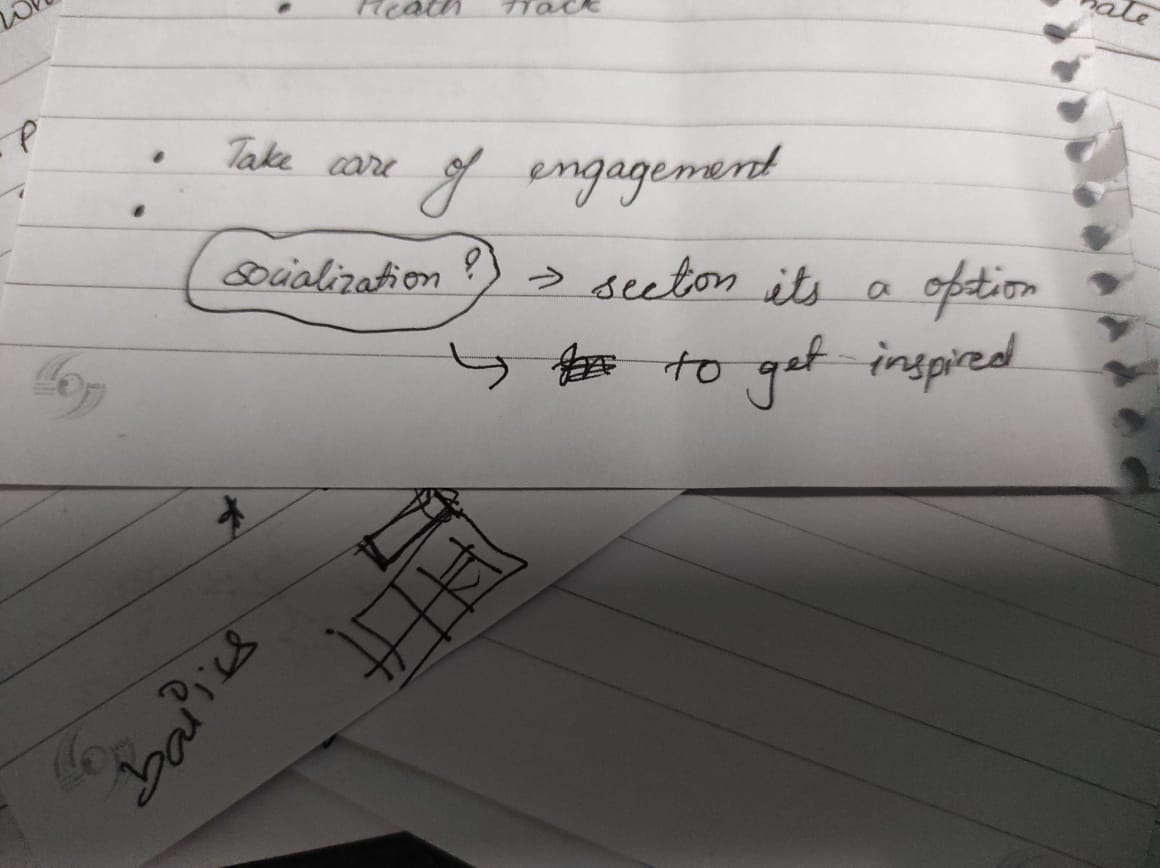 • Heath track
• Take care of engagement
•
socialization? → section its a option
↳ to get inspired